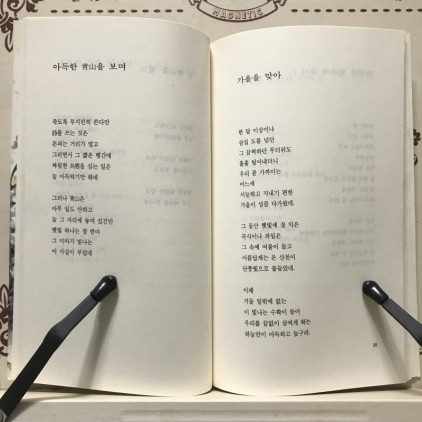 MAGNETIC
아득한 靑山을 보며
죽도록 부지런히 쓴다만
詩를 쓰는 것은
돈과는 거리가 멀고
그러면서 그 짧은 행간에
짜릿한 共感을 심는 일은
늘 아득하기만 하네
그러나 靑山은
아무 일도 안하고
늘 그 자리에 놓여 있건만
햇빛 하나는 잘 받아
그 이마가 빛나는
이 사실이 부럽네
가을을 맞아
한 달 이상이나
삼십 도를 넘던
그 끔찍하던 무더위도
훌훌 털어내더니
우리 몸 가까이는
어느새
서늘하고 지내기 편한
가을이 성큼 다가왔네.
그 동안 햇빛에 잘 익은
곡식이나 과일은
그 속에 여물이 들고
아름답게는 온 산천이
단풍빛으로 물들었네.
이제
거둘 일밖에 없는
이 빛나는 수확이 들어
우리를 끝없이 살찌게 하는
하늘만이 아득하고 높구려.
25